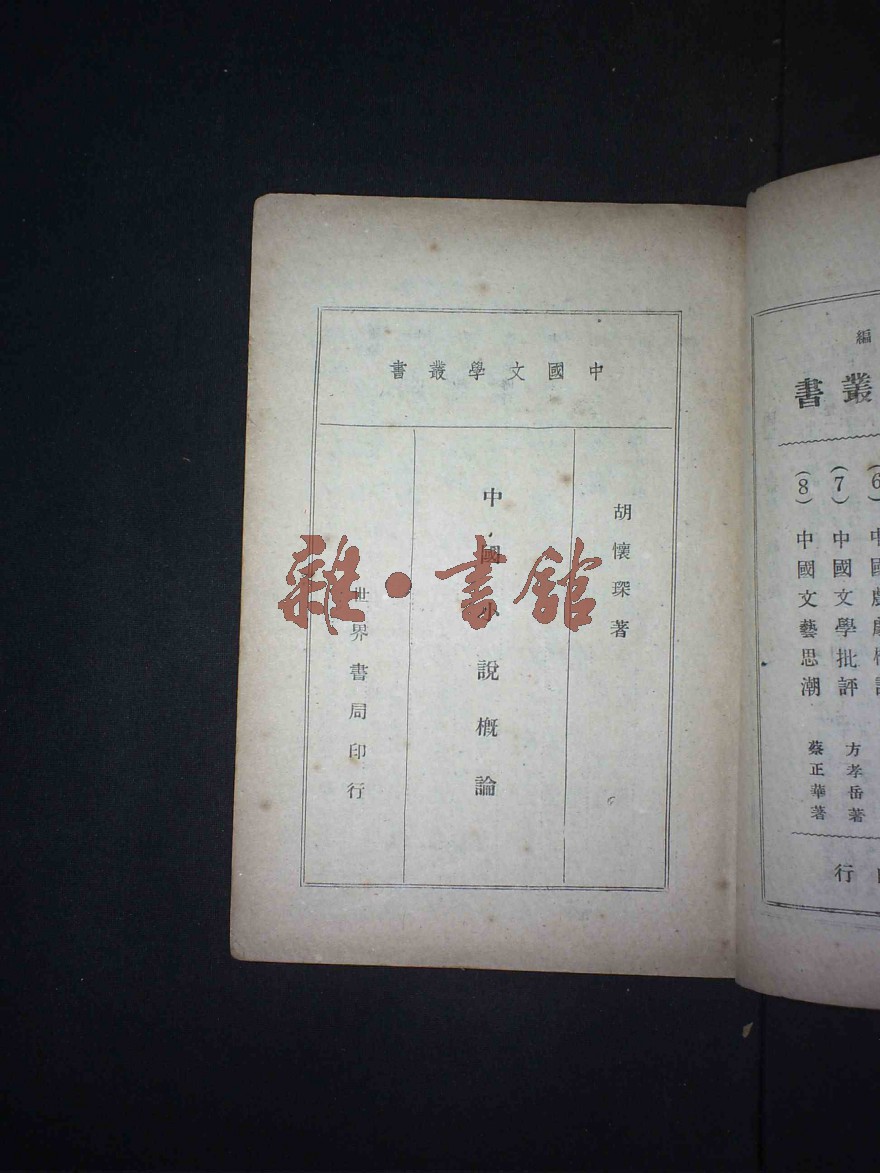 中國文學叢書
胡懷琛著
中國小說概論
世界書局印行
雜·書館
編
叢書
(6) 中國戲劇概
(7) 中國文學批評 方孝岳著
(8) 中國文藝思潮 蔡正華著
行